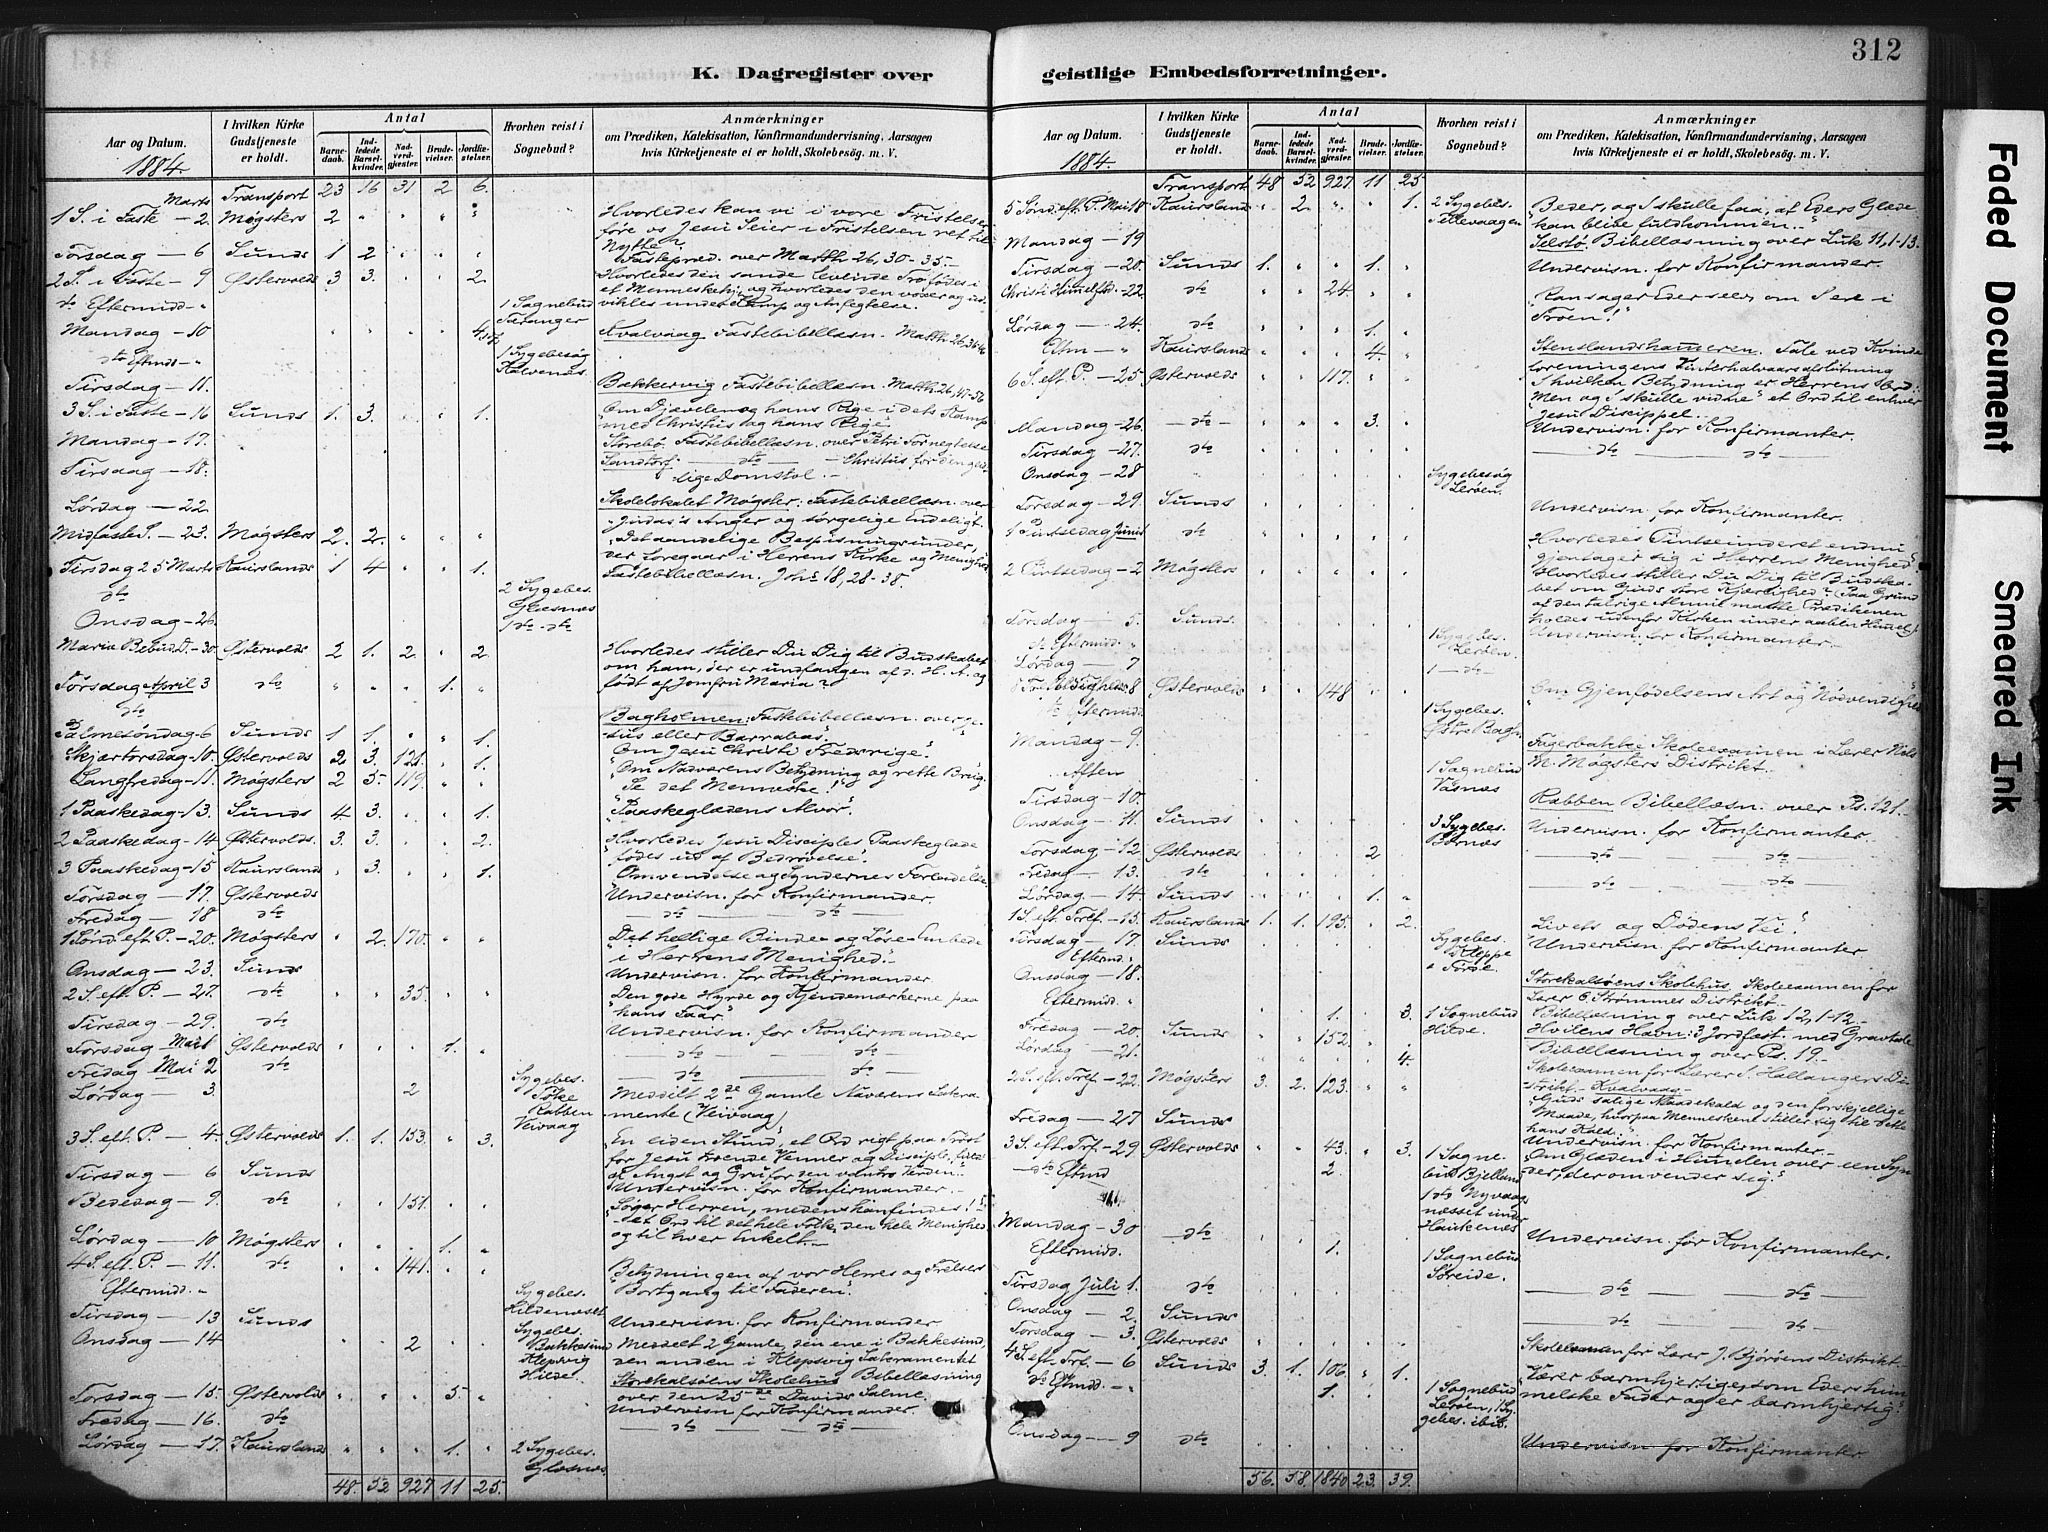 312
K. Dagregister over geistlige Embedsforretninger.
Aar og Datum.
1884.
I hvilken Kirke Gudstjeneste er holdt.
Antal
Barnedaab.
Indledede Barselkvinder.
Nadverdgjester.
Brudevielser.
Jordfæstelser.
Hvorhen reist i Sognebud?
Anmærkninger
om Prædiken, Katekisation, Konfirmandundervisning, Aarsagen
hvis Kirketjeneste ei er holdt, Skolebesøg. m. V.
Marts Transport 23 16 31 2 6.
1 S. i Faste - 2. Møgsters 2 Hvorledes kan vi i vore Fristelser
føre os Jesu Seier i Fristelsen ret til
Nytte?
Torsdag - 6 Sunds 1 2 Fastepræd. over Matth 26,30-35.-
2 S. i Faste - 9 Østervolds 3 3. 2. Hvorledes den sande levende Tro fødes i
et Menneskehj. og hvorledes den voxer og ud-
dto Eftermidd - 1 Sognebud vikles under Kamp og Anfegtelse.
Mandag - 10 Kvalvaag Fastebibellæsn. Matth 26,36-46
dto Eftmd - 1 Sygebesøg
Kalvenæs.
Tirsdag - 11. Bakkervig Fastebibellæsn. Matth 26,47-56
3 S. i Faste - 16 Sunds 1. 3. 1. "Om Djævelen og hans Rige i dets Kamp
med Christus og hans Rige"
Mandag - 17. Storebø Fastebibellæsn. over Petri Fornegtelse
Tirsdag - 18. Landtorf: - dto - Christus for den geist-
lige Domstol. -
Lørdag - 22. Skolelokalet Møgster: Fastebibellæsn. over
"Judas's Anger og sørgelige Endeligt.
Midfaste S. - 23. Møgsters 2. 2. "Det aandelige Bespisningsunder,
der foregaar i Herrens Kirke og Menighed
Tirsdag 25 Marts Kaurslands 1 4 1. Fastebibellæsn. Joh. 18, 28-38.
dto 2 Sygebes.
Glæsnæs
Onsdag - 26. 1 dto - dto
Mariæ Bebud D. - 30. Østervolds 2 1. 2. 2. Hvorledes stiller Du Dig til Budskabet
om ham, der er undfangen af d. H. A. og
født af Jomfru Maria?
Torsdag April 3 dto 1.
dto Bagholmen: Fastebibellæsn. over Je-
sus eller Barrabas".
Palmesøndag - 6 Sunds 1 1. 1. "Om Jesu Christi Fredsrige."
Skjærtorsdag - 10. Østervolds 2 3. 121. 1. "Om Nadverens Betydning og rette Brug.
Langfredag - 11. Møgsters 2 5 119. "Se det Menneske!"
1 Paaskedag - 13. Sunds 4 3. 1. "Paaskeglædens Alvor".
2 Paaskedag - 14 Østervolds. 3. 3. 2. Hvorledes Jesu Disciples Paaskeglæde
fødes ud af Bedrøvelse.
3 Paaskedag - 15 Kaursland 3. 1. "Omvendelse og Syndernes Forladelse.
Torsdag - 17. Østervolds Undervisn. for Konfirmander.
Fredag - 18 dto - dto - dto -
1 Sønd. eft. P. - 20. Møgsters 2. 170. "Det hellige Binde- og Løse-Embede
i Herrens Menighed."
Onsdag - 23. Sunds Undervisn. for Konfirmander
2 S. eft. P. - 27. dto 35. "Den gode Hyrde og Kjendemærkerne paa
hans Faar".
Tirsdag - 29. dto Undervisn. for Konfirmander
Torsdag Mai 1 Østervolds 1. - dto - dto -
Fredag Mai 2 dto - dto - dto -
Lørdag - 3. 2 Sygebes.
Rabben
Veivaag Meddelt 2de Gamle Nadverens Sakra-
mente (Veivaag)
3 S. eft. P. - 4. Østervolds 1. 1. 153. 3. "En liden Stund", et Ord rigt paa Trøst
for Jesu troende Venner og Disciple, fuldt
af Angst og Gru for den vantro Verden".
Tirsdag - 6 Sunds Undervisn. for Konfirmander. -
Bededag - 9. dto 151. "Søger Herren, medens han findes!"
- et Ord til det hele Folk, den hele Menighed
og til hver Enkelt. -
Lørdag - 10 Møgsters 1.
4 S. eft. P. - 11. dto 141. "Betydningen af vor Herres og Frelsers
Bortgang til Faderen."
Eftermidd. Sygebes.
Hildenæset
Tirsdag - 13 Sunds Undervisn. for Konfirmander
Onsdag - 14 2 Sygebes.
Bakkesund
Klepsvig
Hilde. Meddelt 2 Gamle, den ene i Bakkesund,
den anden i Klepsvig Sakramentet
Storekalsøens Skolehus Bibellæsning
over den 25de Davids Salme.
Torsdag - 15. Østervolds 5. Undervisn. for Konfirmander.
Fredag - 16. dto - dto - dto -
Lørdag - 17. Kaurslands 1. 2 Sygebes.
Glæsnæs.
48. 52 927 11 25.
Aar og Datum.
1884.
I hvilken Kirke Gudstjeneste er holdt.
Antal
Barnedaab.
Indledede Barselkvinder.
Nadverdgjester.
Brudevielser.
Jordfæstelser.
Hvorhen reist i Sognebud?
Anmærkninger
om Prædiken, Katekisation, Konfirmandundervisning, Aarsagen
hvis Kirketjeneste ei er holdt, Skolebesøg. m. V.
Transport 48 52 927 11 25
5 Sønd. eft. P. Mai 18 Kaursland 2. 1. 2 Sygebes.
Tellevaagen "Beder, og I skulle faa, at Eders Glæde
kan blive fuldkommen."
Mandag - 19 Selstø. Bibellæsning over Luk 11, 1-13.
Tirsdag - 20. Sunds 1. 1. Undervisn. for Konfirmander.
Christi Himmelftd. - 22. dto 24. "Ransager Eder selv om I ere i
Troen!"
Lørdag - 24. dto 1.
Eftm - Kaurslands 4. Stenslandshammeren. Tale ved Kvinde
foreningens Vinterhalvaarsafslutning
6 S. eft. P. - 25 Østervolds 117. I hvilken Betydning er Herrens Ord:
Men og I skulle vidne" et Ord til enhver
Jesu Discippel.
Mandag - 26. dto 3. Undervisn. for Konfirmanter.
Tirsdag - 27. dto - dto - dto -
Onsdag - 28 Sygebesøg
Lerøen.
Torsdag - 29. Sunds Undervisn. for Konfirmanter.
1 Pintsedag Juni 1 dto Hvorledes Pintseunderet endnu
gjentager sig i Herrens Menighed
2 Pintsedag - 2 Møgsters Hvorledes stiller Du Dig til Budska-
bet om Guds store Kjærlighed? (Paa Grund
af den talrige Almue maatte Prædikenen
holdes udenfor Kirken under aaben Himmel).
Torsdag - 5. Sunds. Undervisn. for Konfirmanter.
dto Eftermidd. 1 Sygebes.
Lerøen.
Lørdag - 7 1 - dto -
Trefoldighed - 8 Østervolds 148 "Om Gjenfødelsens Art og Nødvendighed"
dto Eftermidd. 1 Sygebes.
Østre Bagh.
Mandag - 9. Fagerbakke Skoleexamen i Lærer Nils
M. Møgsters Distrikt.
Aften 1 Sognebud
Vasnæs
Tirsdag - 10. Rabben Bibellæsn. over Ps. 121.
Onsdag - 11. Sunds 3 Sygebes.
Børnæs Undervisn. for Konfirmanter.
Torsdag - 12 Østervolds 2 - dto -
Fredag - 13. dto - dto -
Lørdag - 14. Sunds 1.
1 S. eft. Tref. - 15. Kaurslands 1. 1. 195. 2. Livets og Dødens Vei."
Tirsdag - 17. Sunds Sygebes.
Kleppe
& Førde. Undervisn. for Konfirmanter
Eftermd.
Onsdag - 18. Storekalsøens Skolehus. Skoleexamen for
Lærer O Strømmes Distrikt. -
Eftermidd. 1. 3. 1 Sognebud
Hilde. Bibellæsning over Luk 12, 1-12. -
Hvilens Havn: 3 Jordfæst. med Gravtale
Fredag - 20. Sunds 152.
Lørdag - 21. 4. Bibellæsning over Ps. 19. -
Skoleexamen for Lærer S. Hallangers Di-
strikt - Kvalvaag -
2 S. eft. Tref. - 22. Møgsters 3. 2. 123. "Guds salige Naadekald og den forskjellige
Maade, hvorpaa Menneskene stiller sig til dette
hans Kald."
Fredag - 27 Sunds Undervisn. for Konfirmanter. -
3 S. eft. Tref. - 29 Østervolds 43. 3. 1 Sogne- "Om Glæden i Himmelen over een Syn
- dto Eftmd 2. bud Bjelland der, der omvender sig."
1 dto Nyvaag
næsset under
Haukenæs
Mandag - 30 dto Undervisn. for Konfirmanter.
Eftermidd. 1. 1 Sognebud
Søreide.
Tirsdag Juli 1. dto - dto - dto -
Onsdag - 2. Sunds - dto - dto -
Torsdag - 3. Østervolds Skoleexamen for Lærer J. Bjørøens Distrikt.
4 S. eft. Tref. - 6 Sunds 3. 1. 106. 1. "Værer barmhjertige, som Eders him
melske Fader og er barmhjertig"
dto Eftmd. - 1. 1 Sognebud
Lerøen, 1 Sy-
gebes. ibid.
Onsdag - 9 dto Undervisn for Konfirmanter.
56. 58. 1840 23. 39.
Faded Document
Smeared Ink